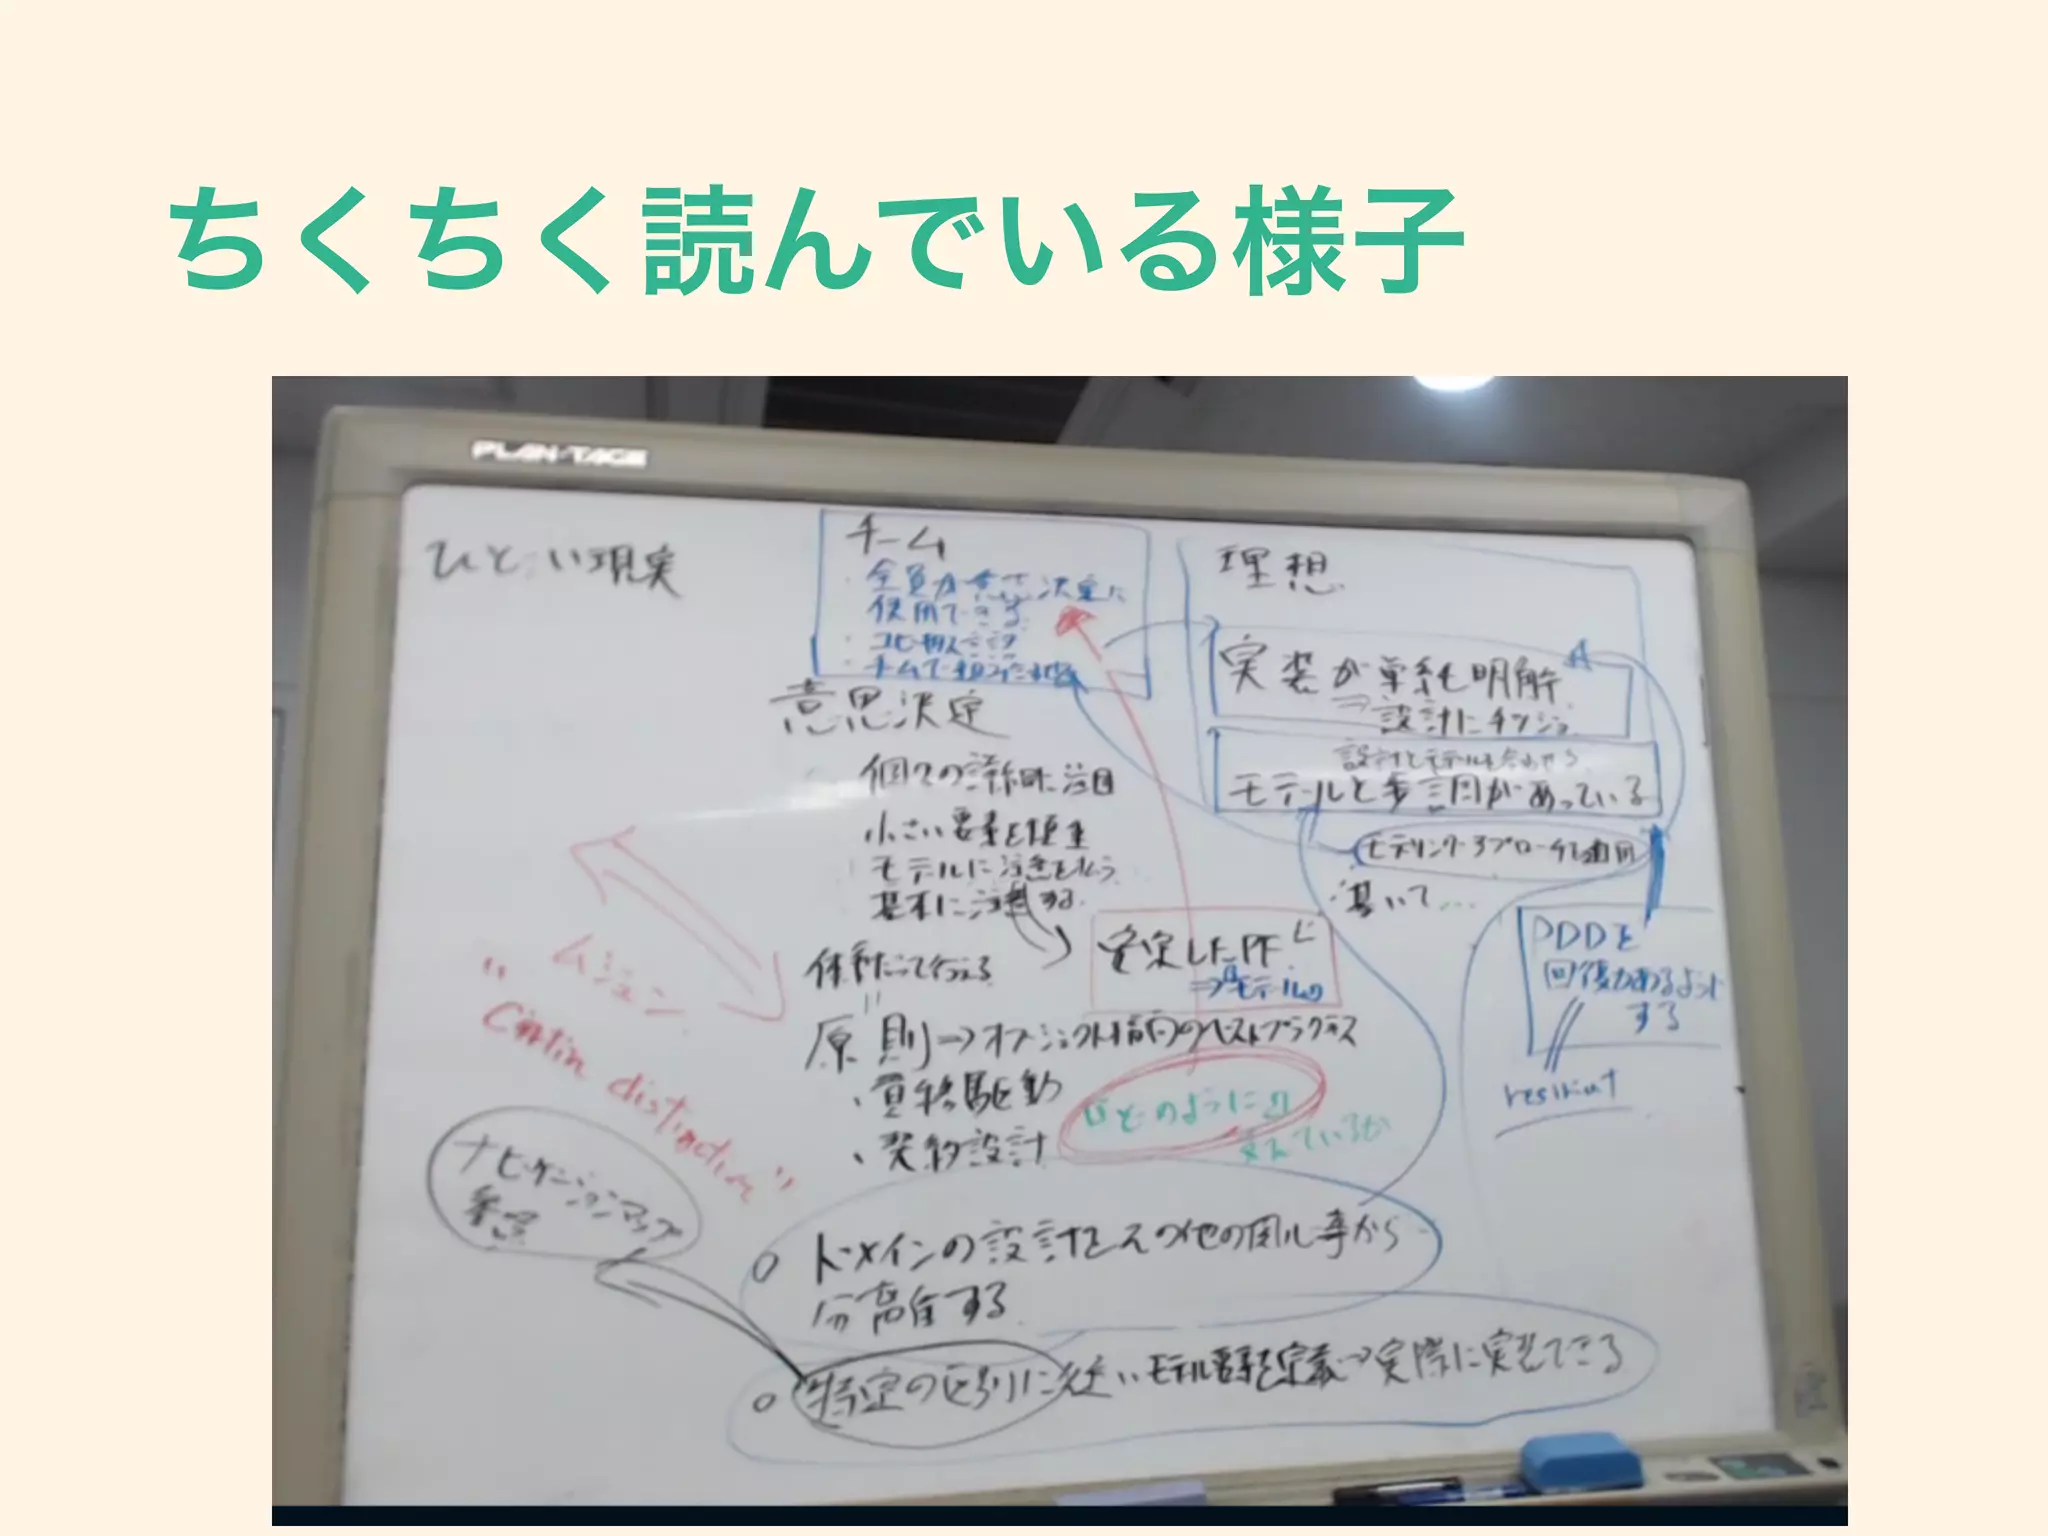 ちくちく読んでいる様子
PLAN-TAGE
ひどい現実
チーム
・全員が意思決定に
使用できる
・チームで
意思決定
個々の詳細に注目
小さい要素を
モデルに注意を払う
基本に注意する
体系だって行える
原則⇒オブジェクト指向のベストプラクティス
・責務駆動
・契約設計
理想
実装が単純明解
⇒設計にチッジョ
設計とモデルを合わせる
モデルと歩調があっている
モデリングアプローチを適用
基いて…
安定したPF
⇒モデルの
DDDを
回復力あるように
する
resilient
ムジュン
"Certain distinction"
どのように
支えているか
ナビゲーションマップ
参照
○ ドメインの設計をその他の関心事から
分離する
○ 特定の区別に従いモデル要素を定義⇒実際に実装できる